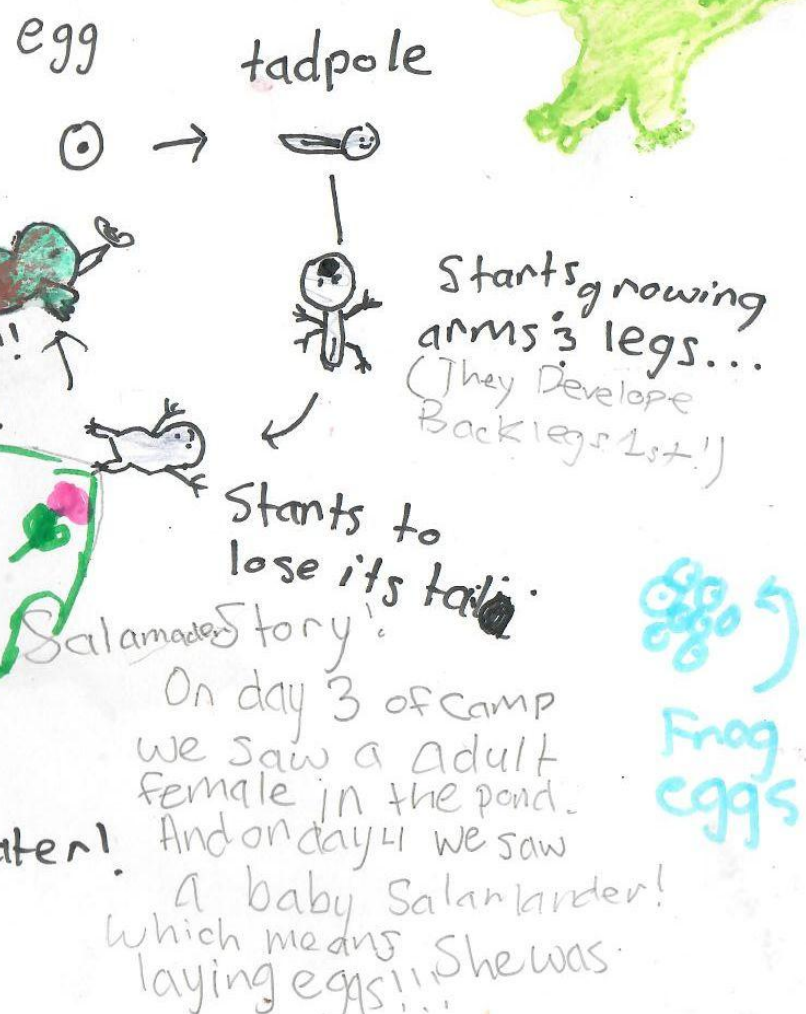 egg
tadpole
Starts growing
arms & legs...
(They Develope
Back legs 1st!)
!!
Starts to
lose its tail.
Salamader Story!
On day 3 of camp
we saw a adult
female in the pond.
And on day 4 we saw
a baby Salamander!
which means She was
laying eggs!!!
Frog
eggs